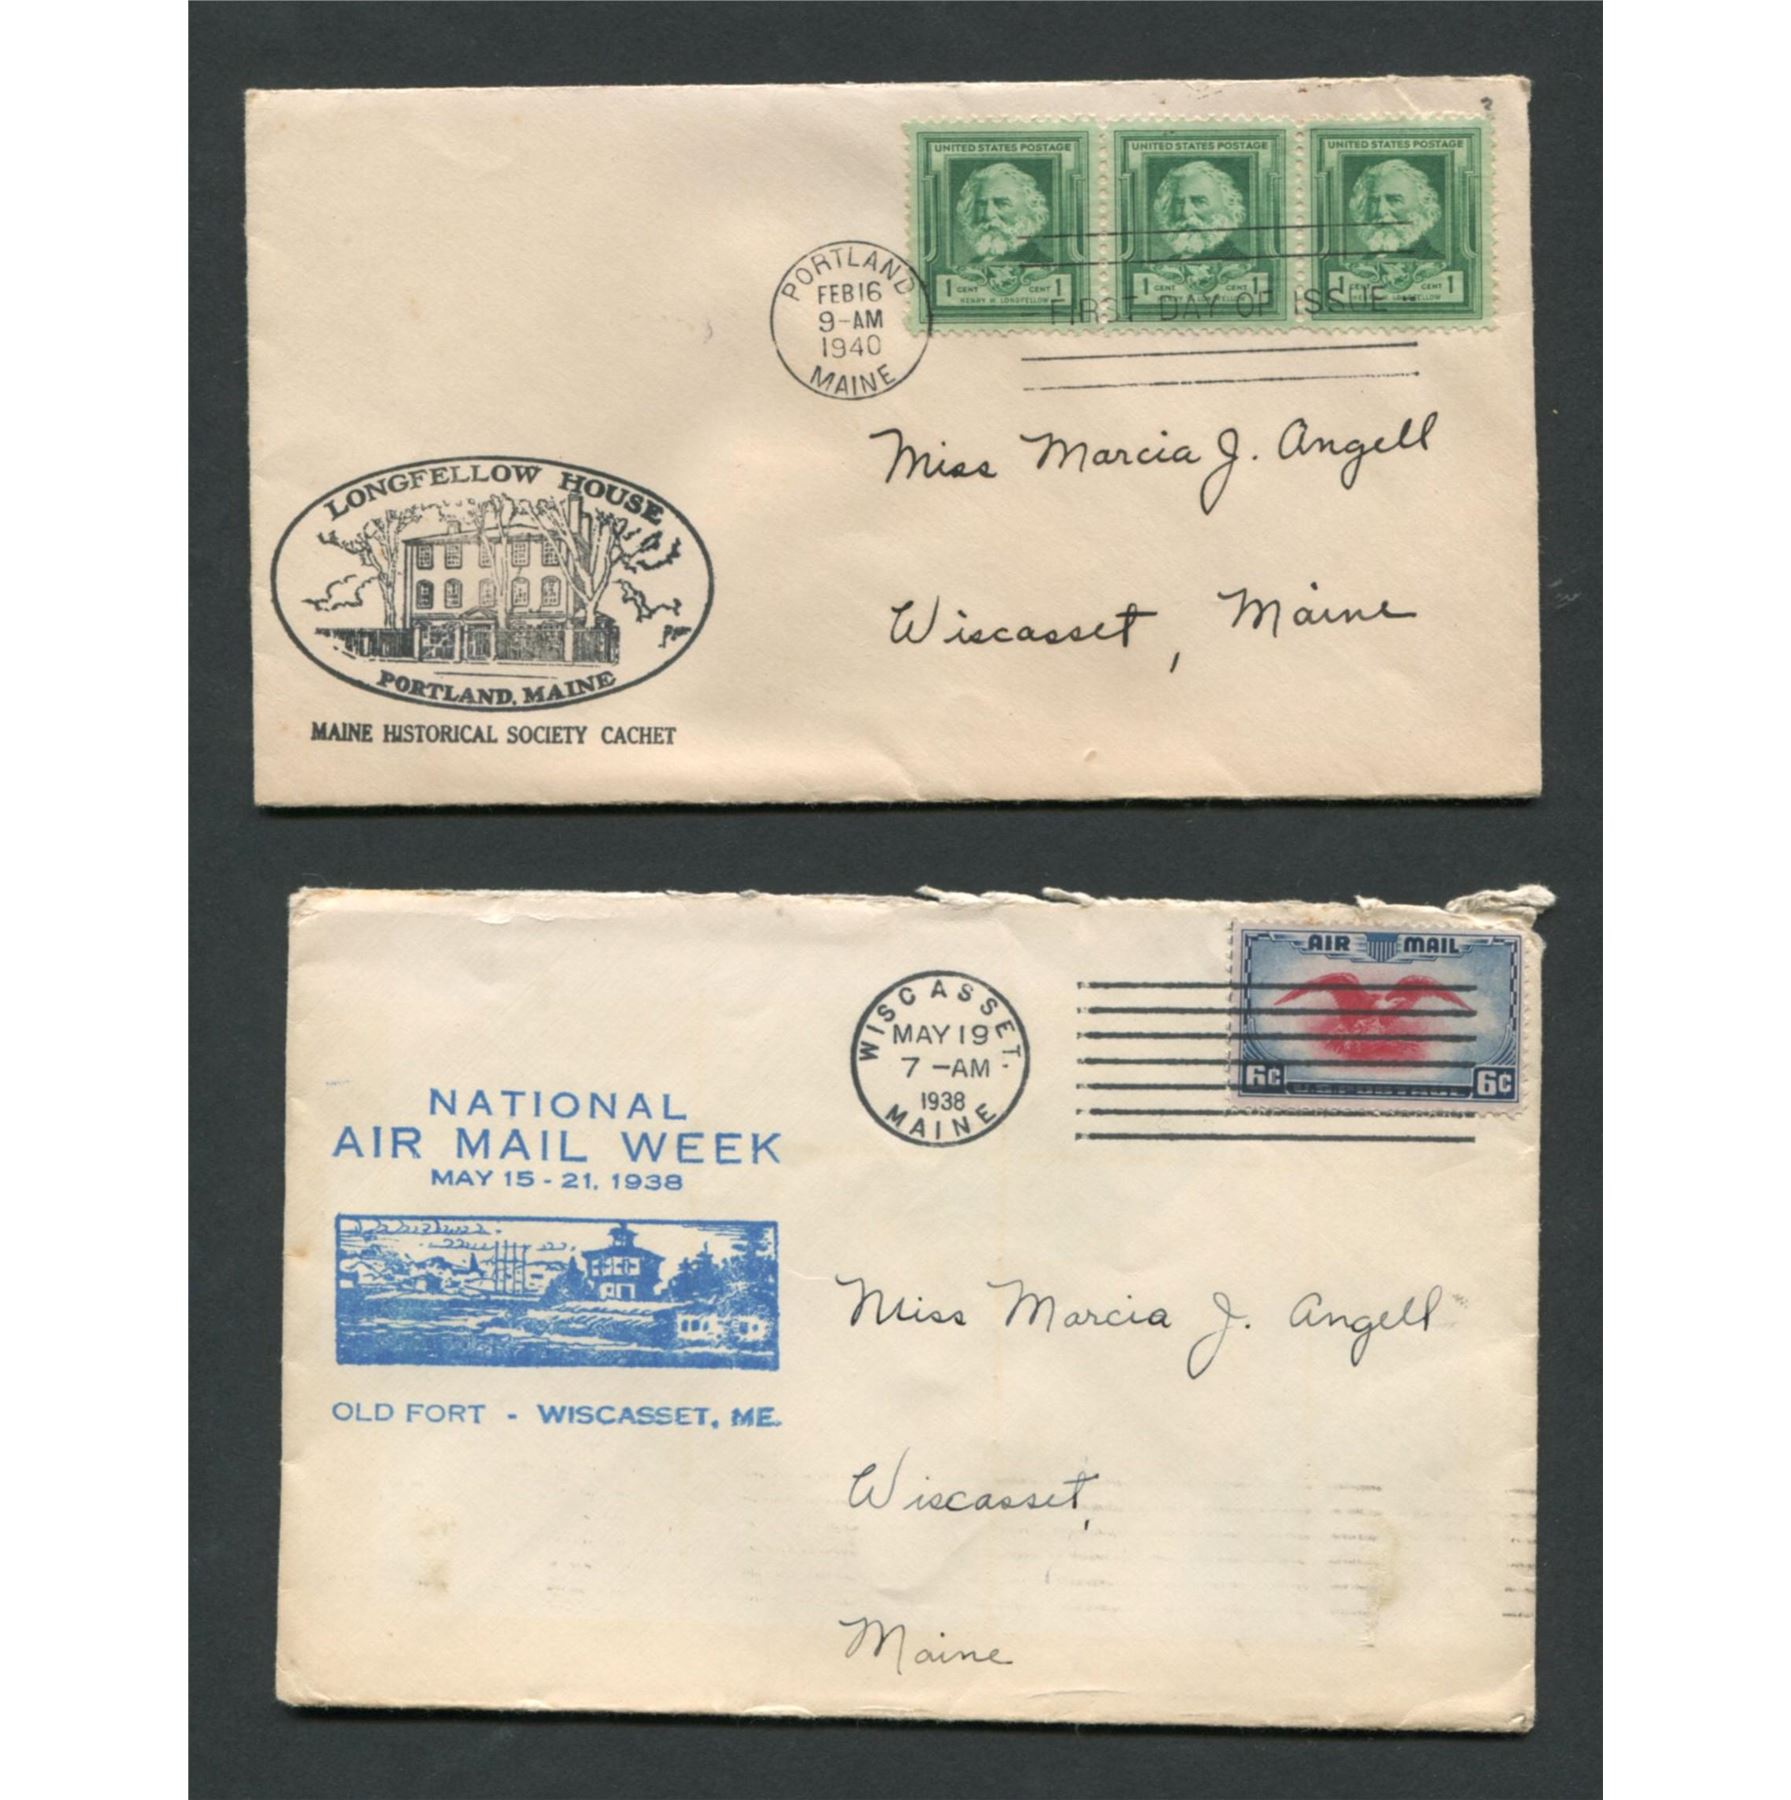 UNITED STATES POSTAGE UNITED STATES POSTAGE UNITED STATES POSTAGE
1 CENT CENT 1 1 CENT CENT 1 1 CENT CENT 1
HENRY W. LONGFELLOW HENRY W. LONGFELLOW HENRY W. LONGFELLOW
PORTLAND
FEB 16
9-AM
1940
MAINE
FIRST DAY OF ISSUE
Miss Marcia J. Angell
Wiscasset, Maine
LONGFELLOW HOUSE
PORTLAND, MAINE
MAINE HISTORICAL SOCIETY CACHET
AIR MAIL
6¢ U.S. POSTAGE 6¢
WISCASSET.
MAY 19
7-AM
1938
MAINE
NATIONAL
AIR MAIL WEEK
MAY 15 - 21, 1938
OLD FORT - WISCASSET, ME.
Miss Marcia J. Angell
Wiscasset,
Maine